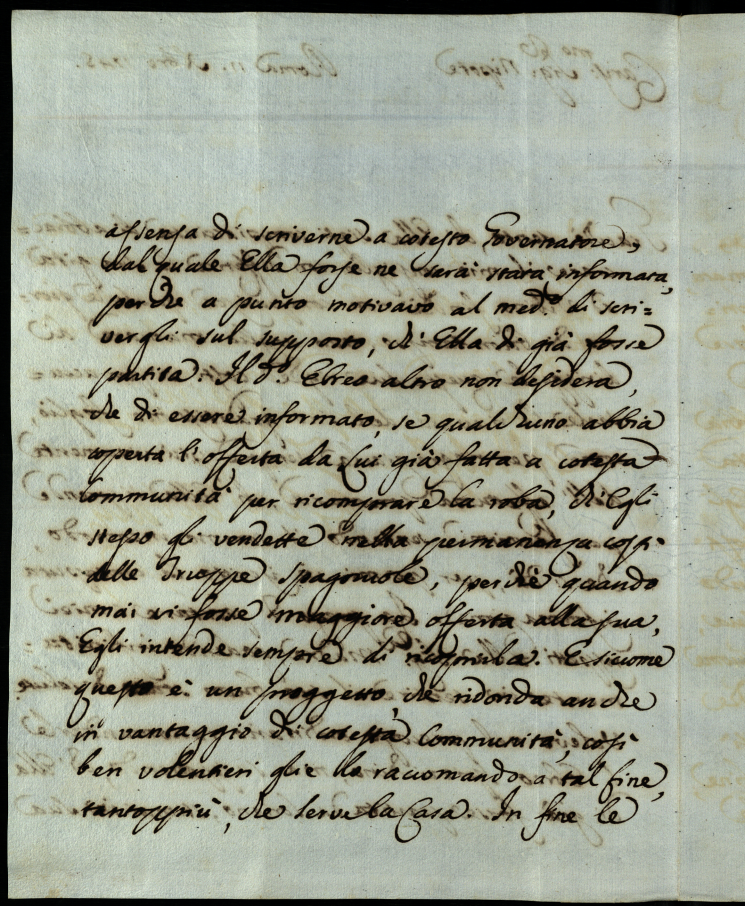 assenza di scriverne a cotesto Governatore,
dal quale Ella forse ne sarà stata informata,
perche a punto motivavo al med.º di scri=
vergli sul supposto, ch'Ella di già fosse
partita. Il d.º Ebreo altro non desidera,
che di essere informato, se qualcheduno abbia
coperta l'offerta da Lui già fatta a cotesta
Communità per ricomprare la roba, ch'Egli
stesso gli vendette nella permanenza costì
delle Truppe Spagnuole, perchè quando
mai vi fosse maggiore offerta alla sua,
Egli intende sempre di ricoprirla. E siccome
questo è un proggetto, che ridonda anche
in vantaggio di cotesta Communità, così
ben volentieri glie lo raccomando a tal fine,
tantoppiù, che serve la Casa. In fine le